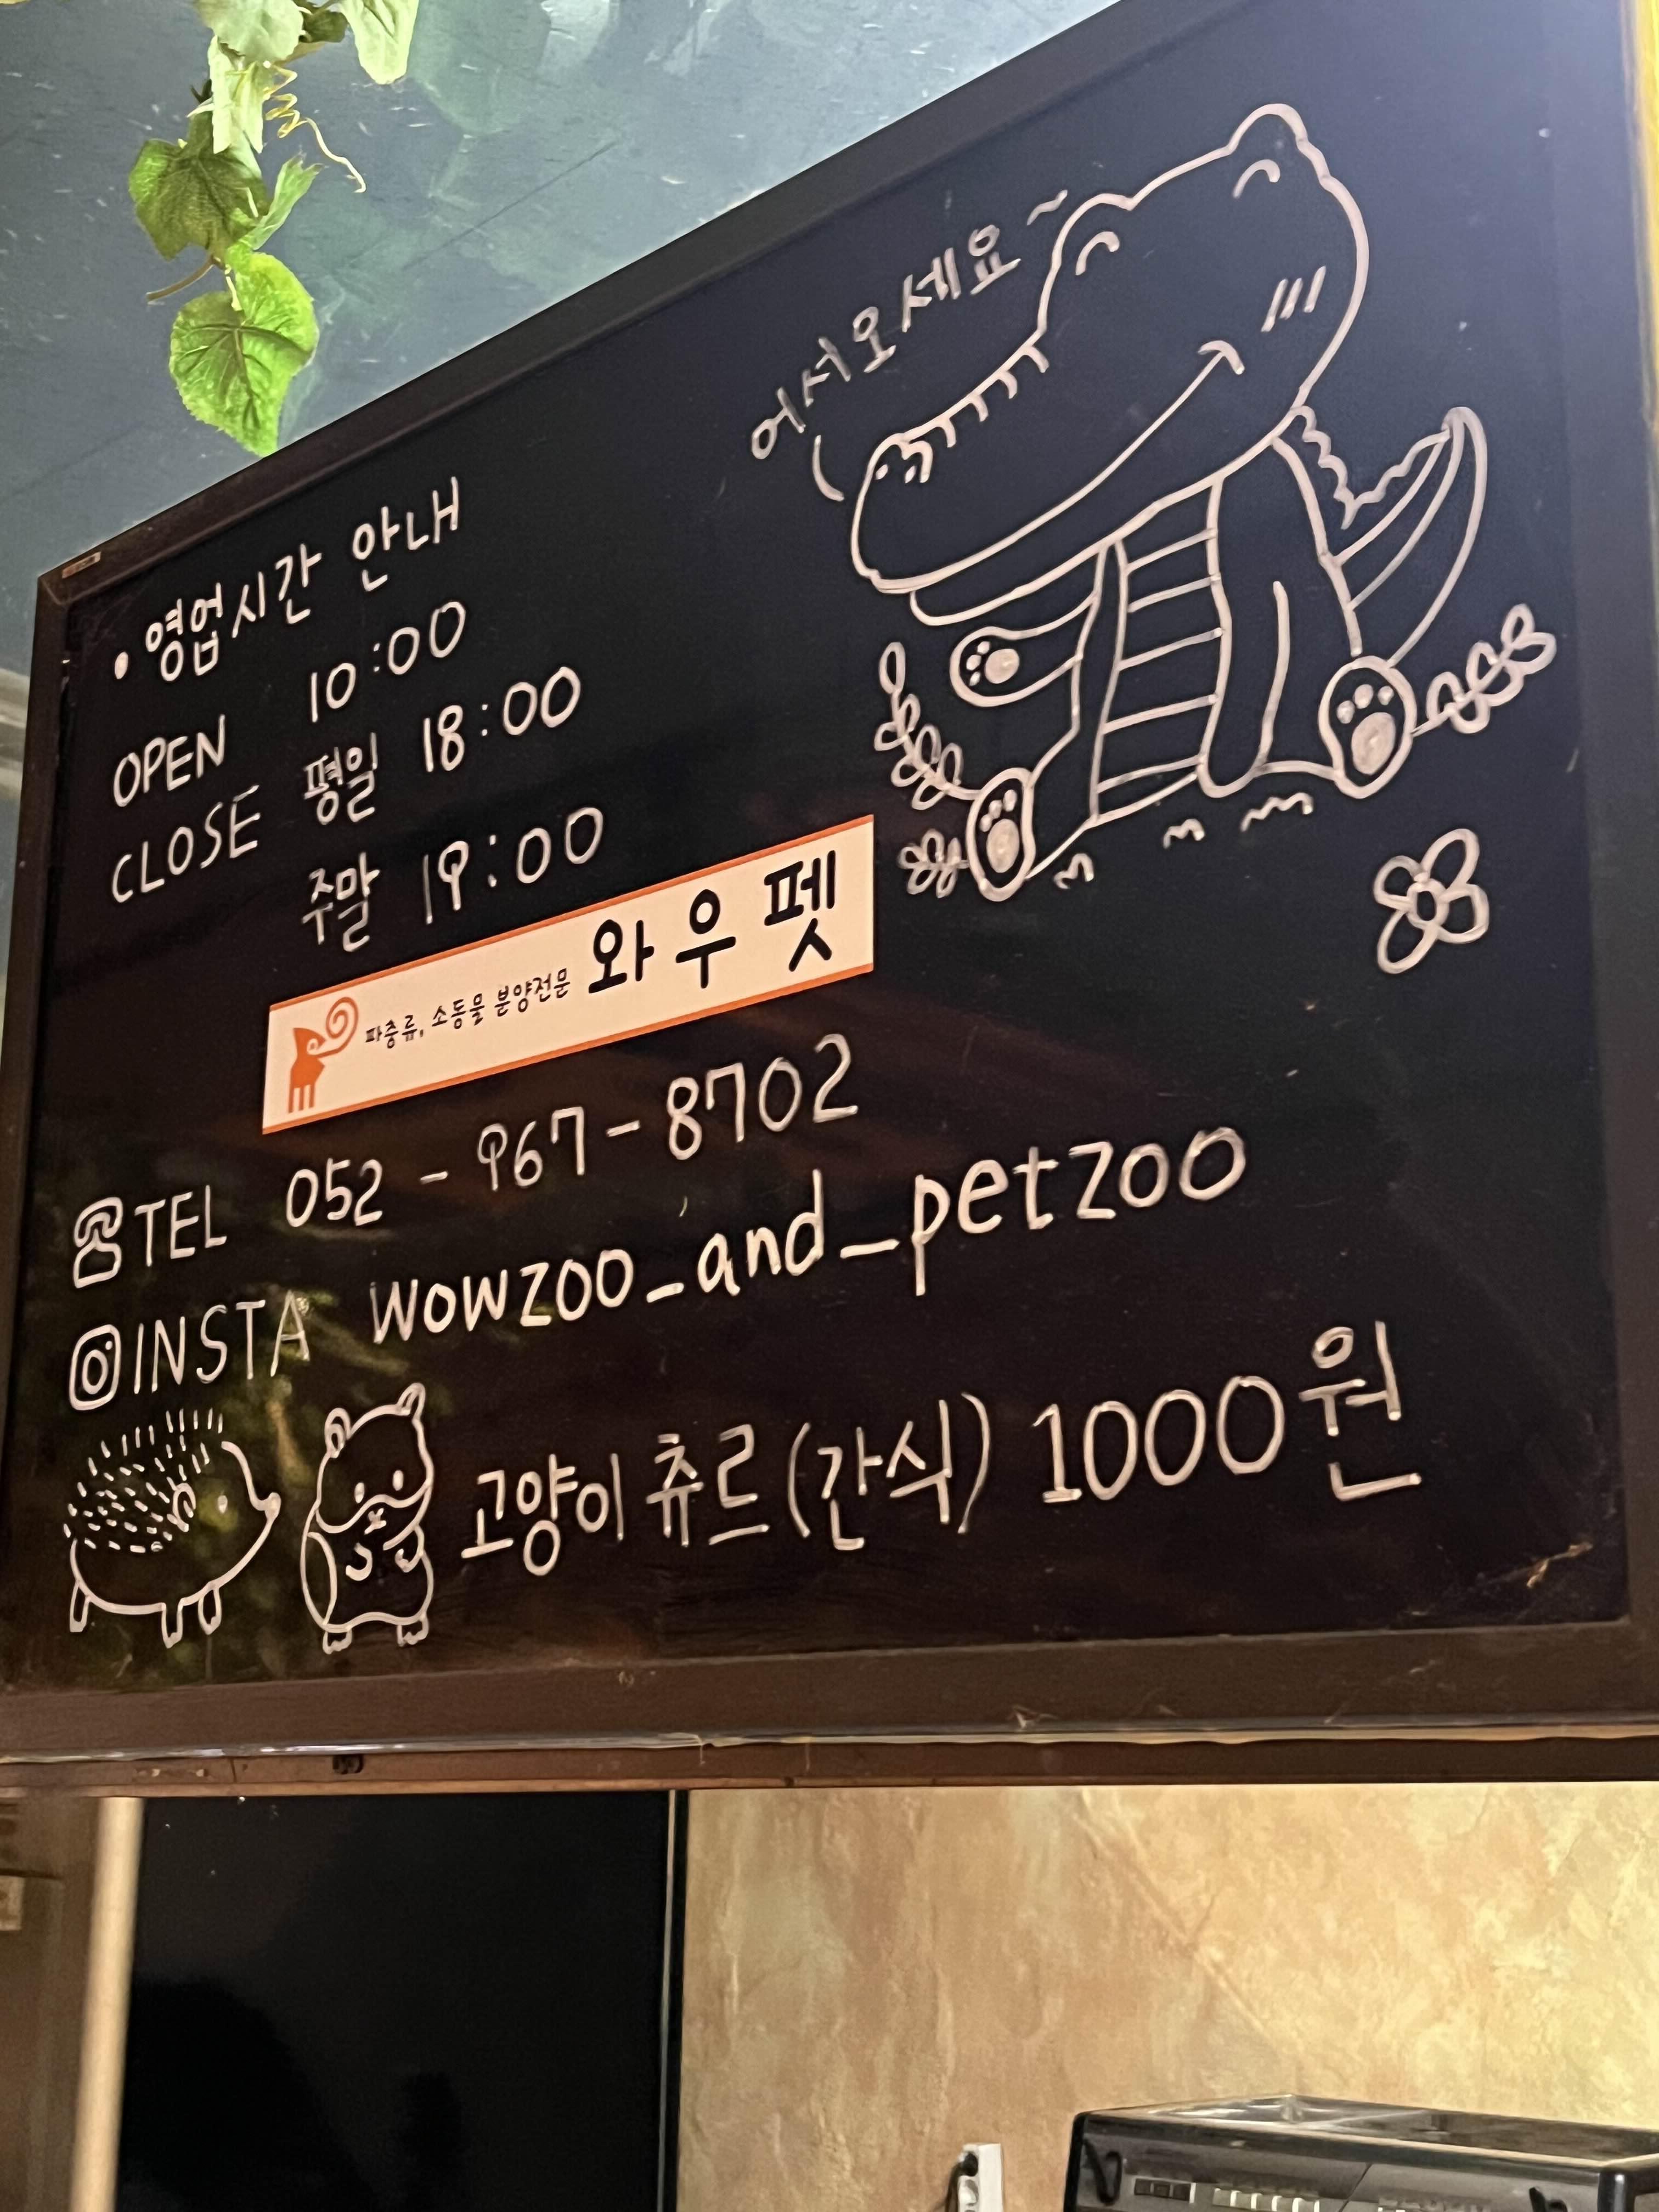 어서오세요~
• 영업시간 안내
OPEN 10:00
CLOSE 평일 18:00
주말 19:00
파충류, 소동물 분양전문 와우펫
TEL 052-967-8702
INSTA wowzoo_and_petzoo
고양이 츄르(간식) 1000원